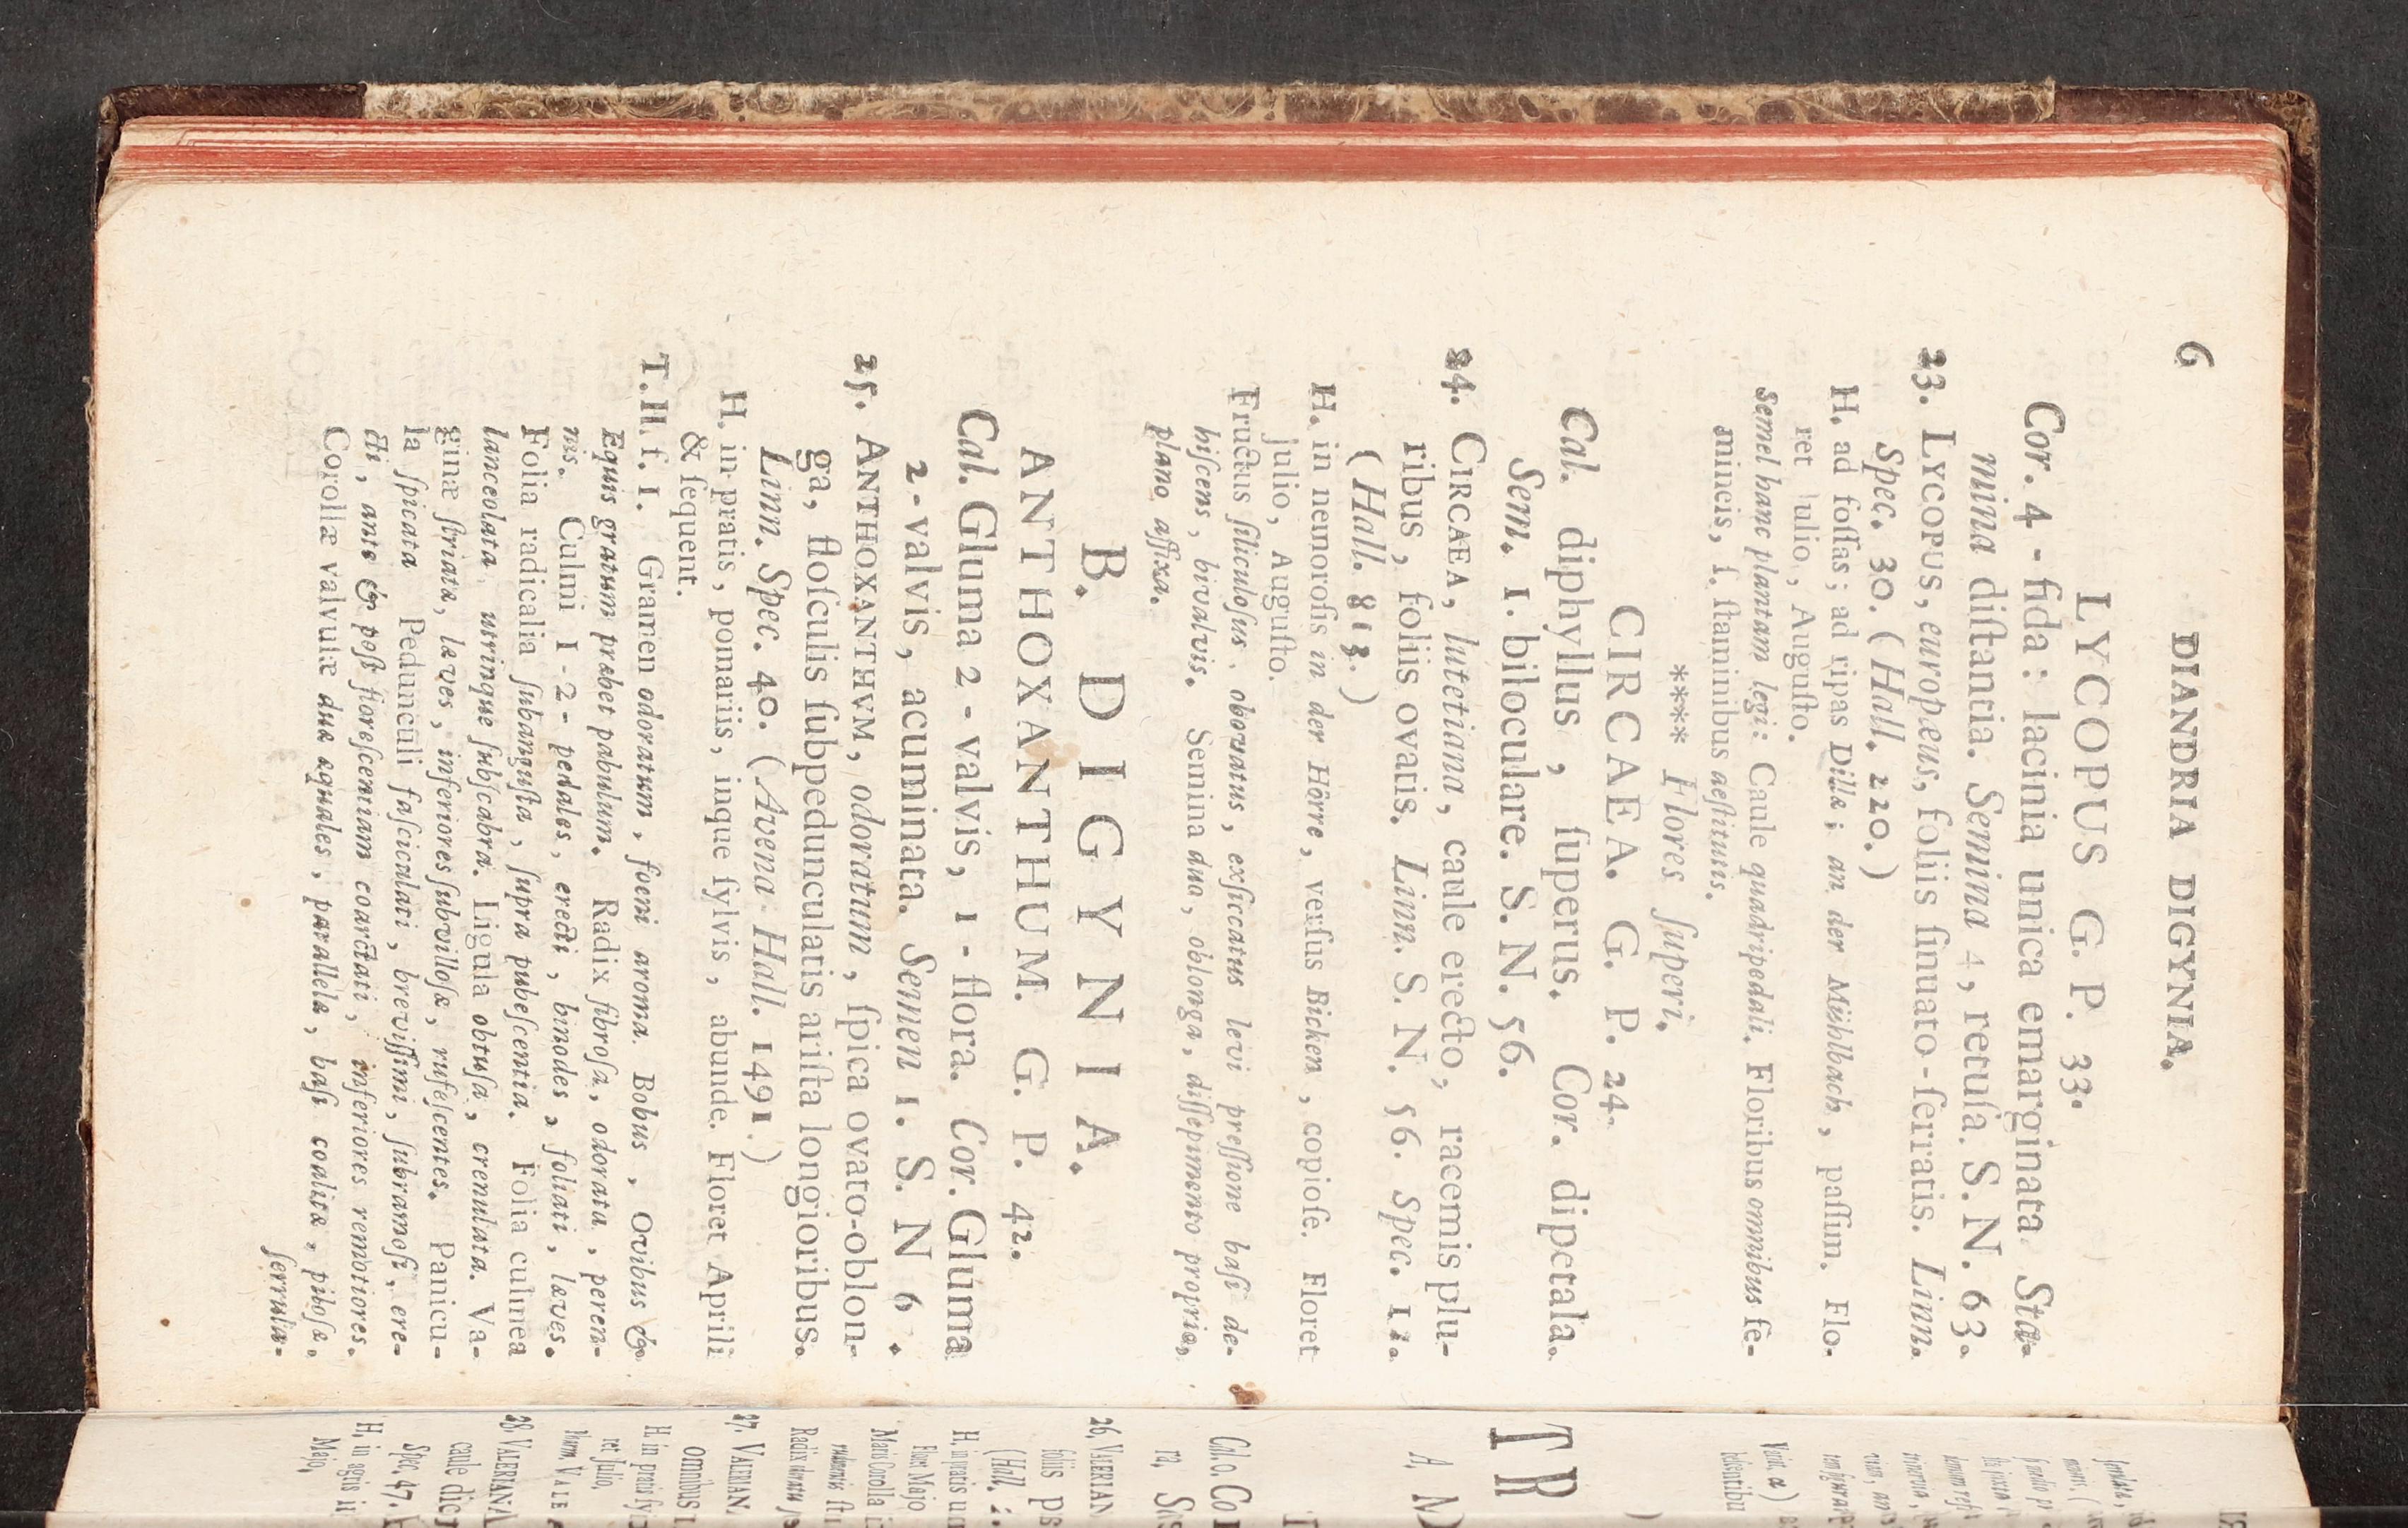 6
DIANDRIA DIGYNIA.
LYCOPUS G. P. 33.
Cor. 4-fida: lacinia unica emarginata. Sta-
mina diſtantia. Semina 4, retuſa. S. N. 63.
23. LYCOPUS, europæus, foliis ſinuato-ſerratis. Linn.
Spec. 30. (Hall. 220.)
H. ad foſſas; ad ripas Dillæ; an der Mühlbach, paſſim. Flo-
ret Julio, Auguſto.
Semel hanc plantam legi: Caule quadripedali. Floribus omnibus fe-
mineis, ſ. ſtaminibus deſtitutis.
**** Flores ſuperi.
CIRCAEA. G. P. 24.
Cal. diphyllus, ſuperus. Cor. dipetala.
Sem. 1. biloculare. S. N. 56.
24. CIRCÆA, lutetiana, caule erecto, racemis plu-
ribus, foliis ovatis. Linn. S. N. 56. Spec. 12.
(Hall. 813.)
H. in nemoroſis in der Hörre, verſus Bicken, copioſe. Floret
Julio, Auguſto.
Fructus ſiliculoſus, obovatus, exſiccatus levi preſſione baſi de-
hiſcens, bivalvis. Semina duo, oblonga, diſſepimento proprio,
plano affixa.
B. DIGYNIA.
ANTHOXANTHUM. G. P. 42.
Cal. Gluma 2-valvis, 1-flora. Cor. Gluma
2-valvis, acuminata. Semen 1. S. N 6.
25. ANTHOXANTHVM, odoratum, ſpica ovato-oblon-
ga, floſculis ſubpedunculatis ariſta longioribus.
Linn. Spec. 40. (Avena Hall. 1491.)
H. in pratis, pomariis, inque ſylvis, abunde. Floret Aprili
& ſequent.
T. II. f. 1. Gramen odoratum, foeni aroma. Bobus, Ovibus &
Equis gratum præbet pabulum. Radix fibroſa, odorata, peren-
nis. Culmi 1-2-pedales, erecti, binodes, foliati, læves.
Folia radicalia ſubanguſta, ſupra pubeſcentia. Folia culmea
lanceolata utrinque ſubſcabra. Ligula obtuſa, crenulata. Va-
ginæ ſtriatæ, læves, inferiores ſubvilloſæ, rufeſcentes. Panicu-
la ſpicata Pedunculi faſciculati, breviſſimi, ſubramoſi, ere-
cti, ante & poſt floreſcentiam coarctati, inferiores remotiores.
Corollæ valvulæ duæ æquales, parallelæ, baſi coalitæ, piloſæ,
ſerrulæ-
TR
26. VALERIAN
foliis
(Hall.
27. VALERIAN.
omnibus
28. VALERIANA
caule dic
Spec. 47.
H. in agris
Majo,